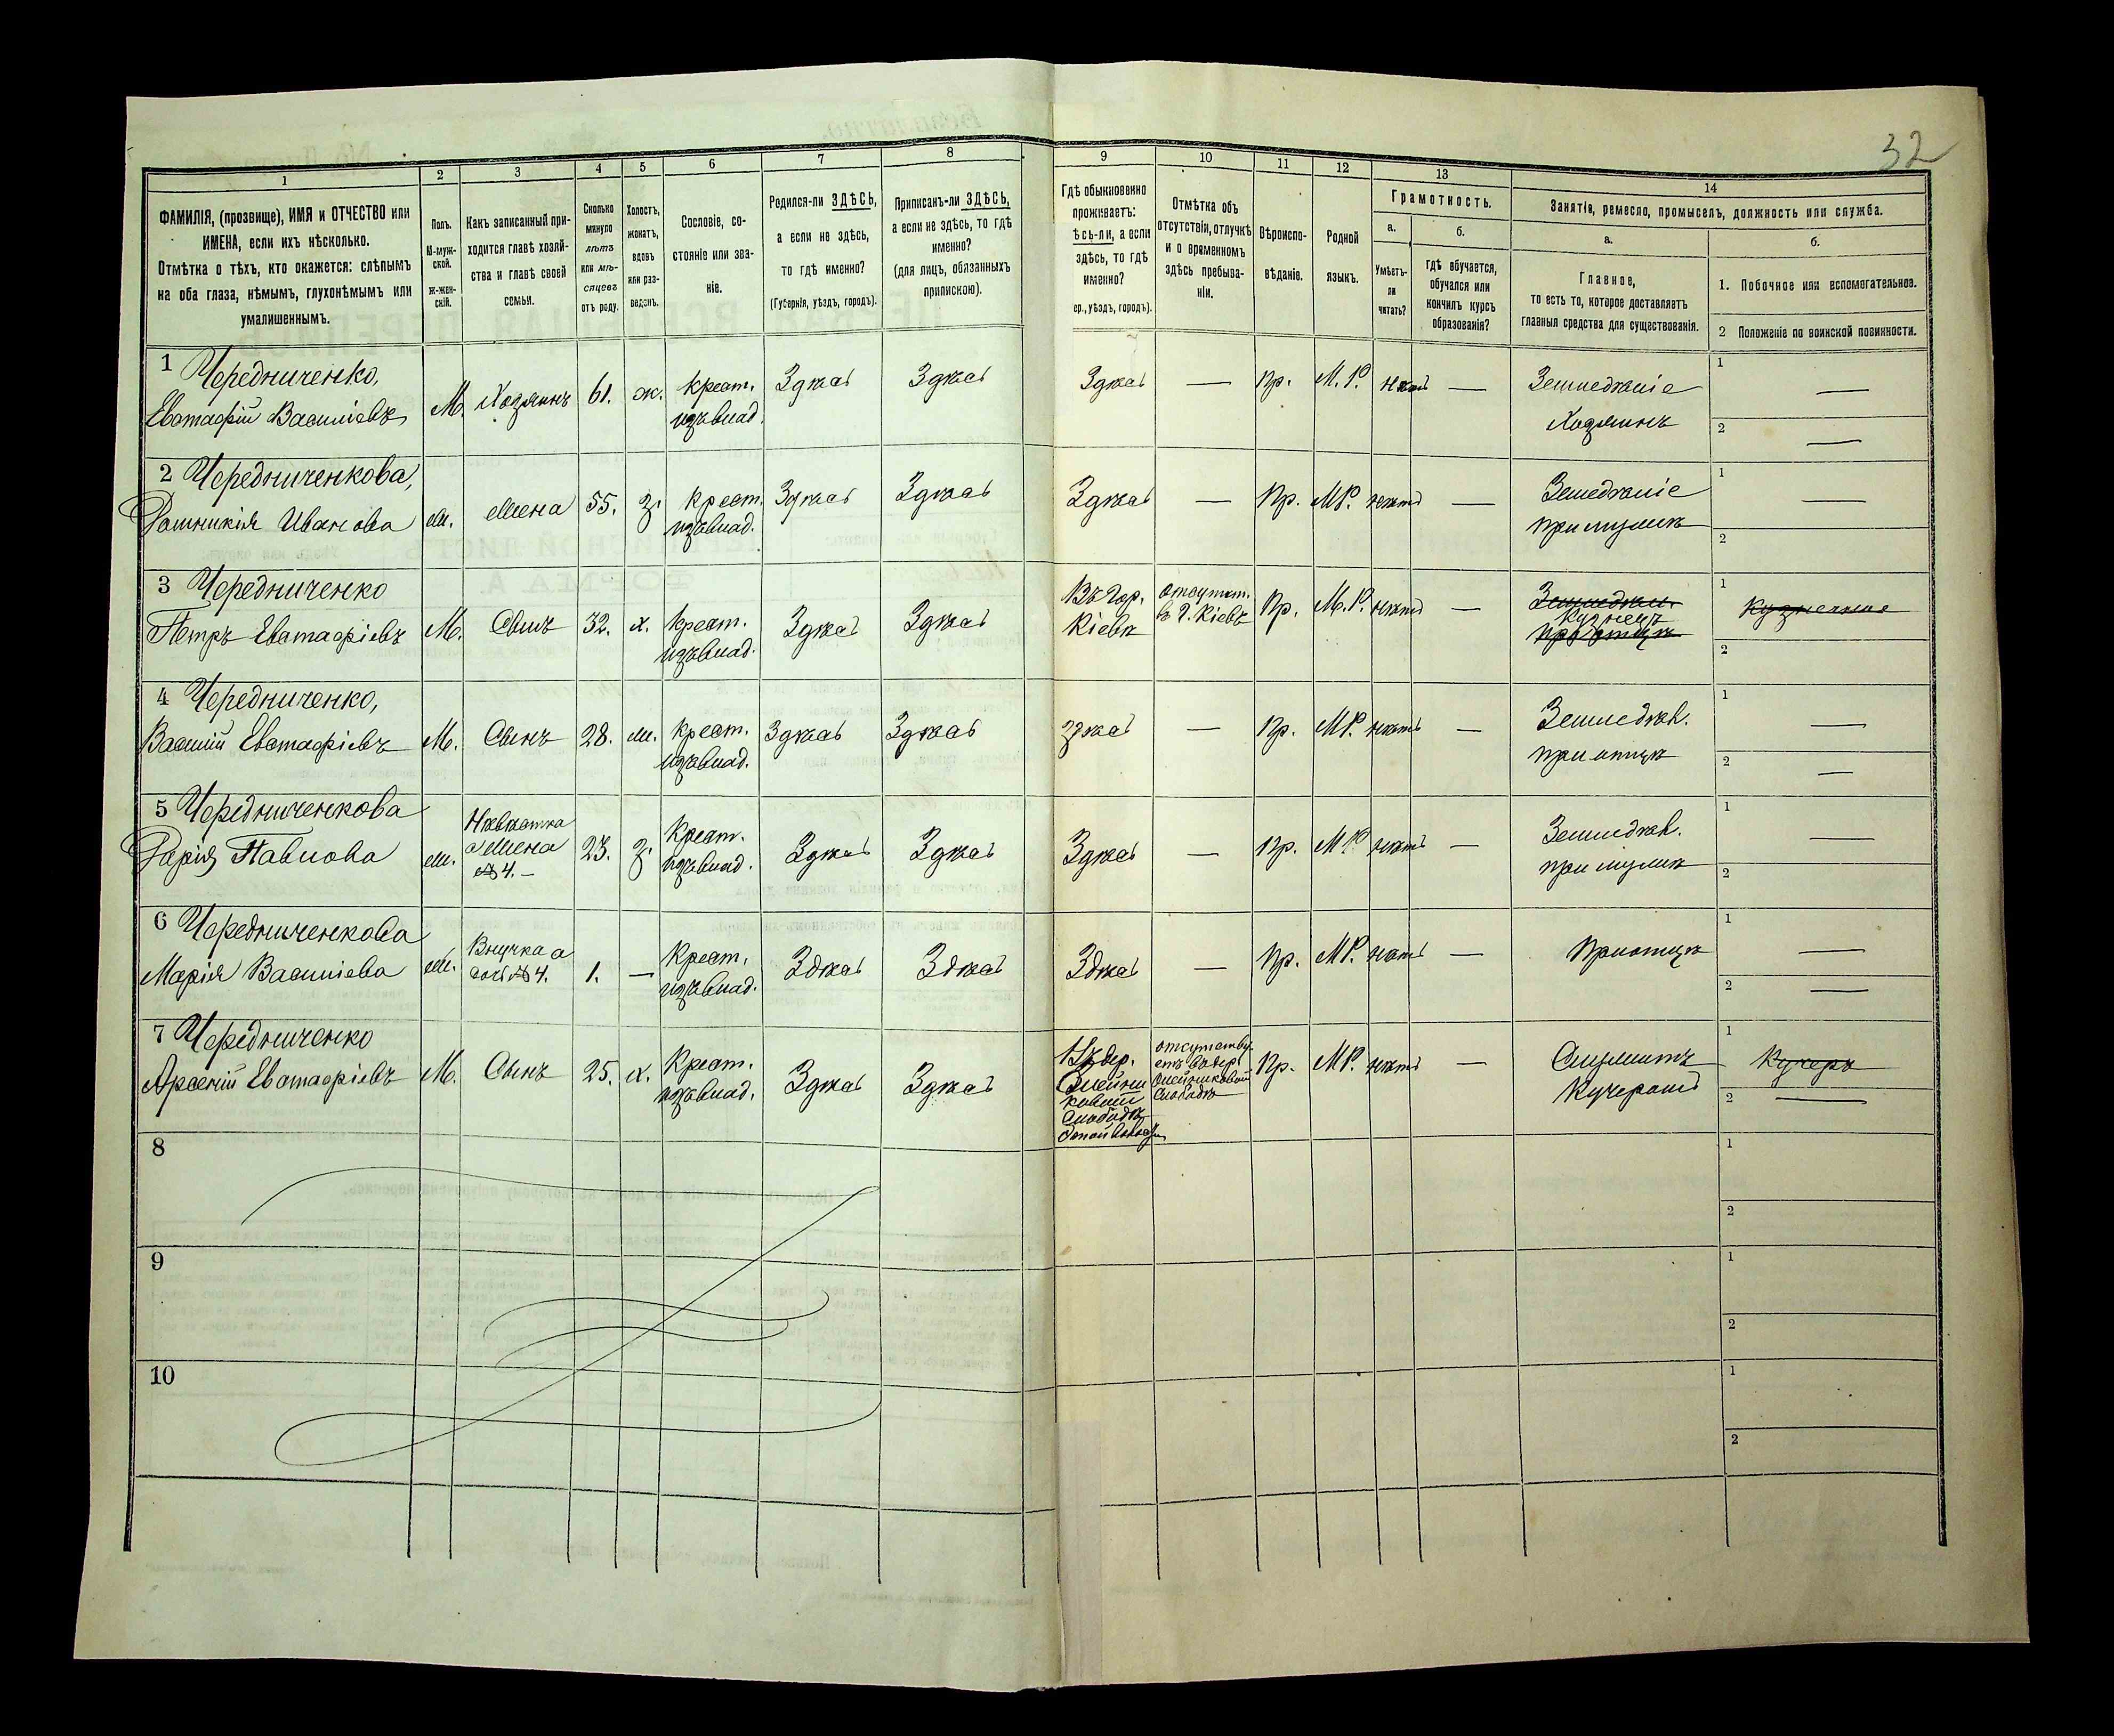 32
1
2
3
4
5
6
7
8
9
10
11
12
13
14
ФАМИЛІЯ, (прозвище), ИМЯ и ОТЧЕСТВО или
ИМЕНА, если ихъ нѣсколько.
Отмѣтка о тѣхъ, кто окажется: слѣпымъ
на оба глаза, нѣмымъ, глухонѣмымъ или
умалишеннымъ.
Полъ.
М-муж-
ской.
Ж-жен-
скій.
Какъ записанный при-
ходится главѣ хозяй-
ства и главѣ своей
семьи.
Сколько
минуло
лѣтъ
или мѣ-
сяцевъ
отъ роду.
Холостъ,
женатъ,
вдовъ
или раз-
веденъ.
Сословіе, со-
стояніе или зва-
ніе.
Родился-ли ЗДѢСЬ,
а если не здѣсь,
то гдѣ именно?
(Губернія, уѣздъ, городъ).
Приписанъ-ли ЗДѢСЬ,
а если не здѣсь, то гдѣ
именно?
(для лицъ, обязанныхъ
припискою).
Гдѣ обыкновенно
проживаетъ:
ѣсь-ли, а если
здѣсь, то гдѣ
именно?
ер., уѣздъ, городъ).
Отмѣтка объ
отсутствіи, отлучкѣ
и о временномъ
здѣсь пребыва-
ніи.
Вѣроиспо-
вѣданіе.
Родной
языкъ.
Грамотность.
а.
Умѣетъ-
ли
читать?
б.
гдѣ обучается,
обучался или
кончилъ курсъ
образованія?
Занятіе, ремесло, промыселъ, должность или служба.
а.
Главное,
то есть то, которое доставляетъ
главныя средства для существованія.
б.
1. Побочное или вспомогательное.
2 Положеніе по воинской повинности.
1 Чередниченко,
Евстафій Васильевъ
М. Хозяинъ 61. ж. Крест.
изъ влад.
Здѣсь Здѣсь Здѣсь — Пр. М.Р. нѣтъ — Земледѣліе
Хозяинъ
1 —
2 —
2 Чередниченкова,
Иванова
ж. Жена 55. з. Крест.
изъ влад.
Здѣсь Здѣсь Здѣсь — Пр. МР. нѣтъ — Земледѣліе
при мужѣ
1 —
2
3 Чередниченко
Петръ Евстафіевъ
М. Сынъ 32. х. Крест.
изъ влад.
Здѣсь Здѣсь Въ гор.
Кіевѣ
отсутст.
въ г. Кіевѣ
Пр. М.Р. нѣтъ —
Кузнецъ
при отцѣ
1
2
4 Чередниченко,
Василій Евстафіевъ
М. Сынъ 28. ж. Крест.
изъ влад.
Здѣсь Здѣсь Здѣсь — Пр. МР. нѣтъ — Земледѣл.
при отцѣ
1 —
2 —
5 Чередниченкова
Дарія Павлова
ж. Невѣстка
а жена
№ 4. —
23. з. Крест.
изъ влад.
Здѣсь Здѣсь Здѣсь — Пр. МР нѣтъ — Земледѣл.
при мужѣ
1 —
2
6 Чередниченкова
Марія Василіева
ж. Внучка а
дочь № 4.
1. — Крест.
изъ влад.
Здѣсь Здѣсь Здѣсь — Пр. МР. нѣтъ — При отцѣ
1 —
2 —
7 Чередниченко
Арсеній Евстафіевъ
М. Сынъ 25. х. Крест.
изъ влад.
Здѣсь Здѣсь Въ дер.
Слободкѣ
отсутству-
етъ въ дер.
Слободкѣ
Пр. МР. нѣтъ — Служитъ
Кучеромъ
1 Кучеръ
2 —
8
1
2
9
1
2
10
1
2